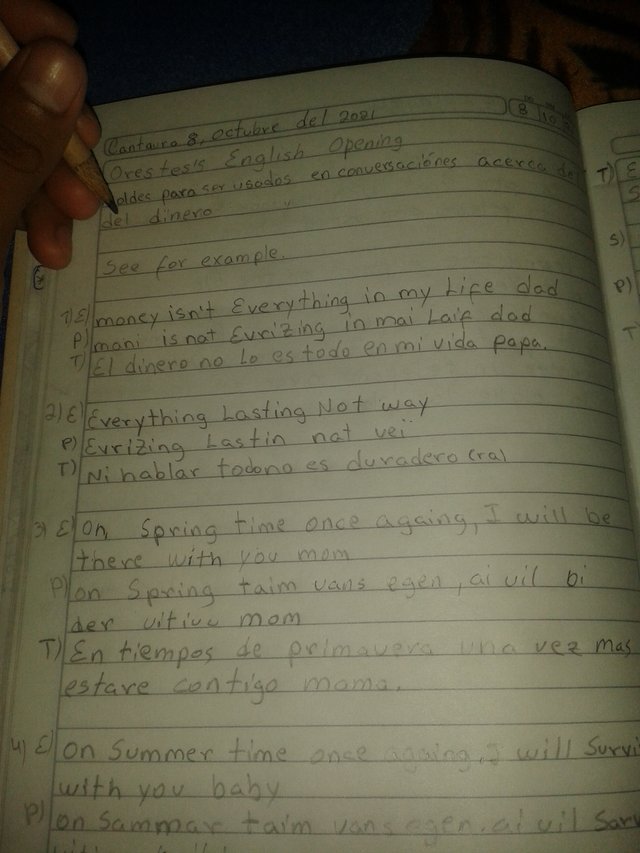 Cantaura 8, octubre del 2021
8 10
Orestes's English Opening
Moldes para ser usados en conversaciónes acerca de
del dinero
See for example.
1) E) money isn't Everything in my Life dad
P) mani is not Evrizing in mai Laif dad
T) El dinero no lo es todo en mi vida papa.
2) E) Everything Lasting Not way
P) Evrizing Lastin nat vei
T) Ni hablar todo no es duradero (ra)
3) E) On, Spring time once againg, I will be
there with you mom
P) on Spring taim vans egen, ai vil bi
der vitiuu mom
T) En tiempos de primavera una vez mas
estare contigo mama.
4) E) On Summer time once againg, I will Survi
with you baby
P) on Sammar taim vans egen. ai vil Sarv
T) E
S)
P)
T